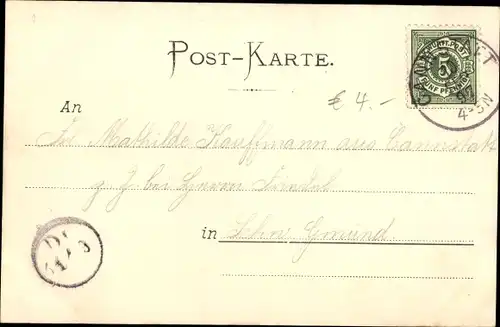 POST-KARTE.
5
FÜNF PFENNIG
€ 4.-
4-5N
An
Mathilde Kauffmann aus Cannstatt
z. Z. bei Herrn
in Schw. Gmünd